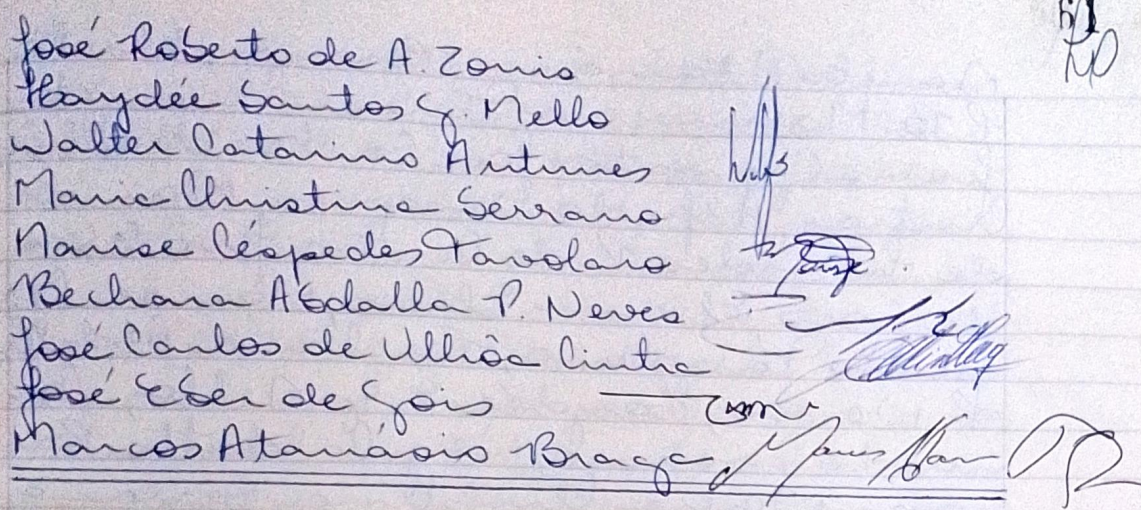 José Roberto de A. Zonis
Haydée Santos G. Mello
Walter Catarino Antunes
Maria Christina Serrano
Marise Céspedes Tavolaro
Bechara Abdalla P. Neves
José Carlos de Ulhôa Cintra
José Eber de Gois
Marcos Atanásio Braga